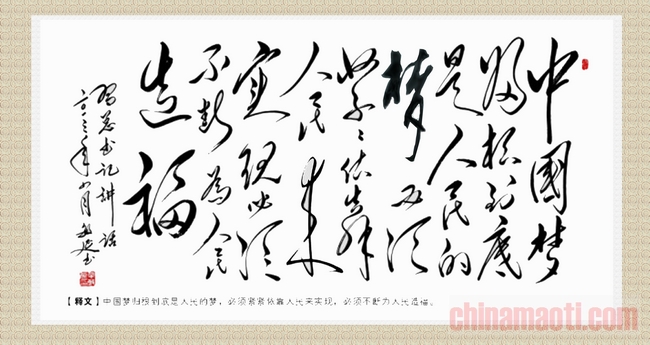 中國梦
归根到底
是人民的
梦必须
紧紧依靠
人民来
实现必须
不断为人民
造福
習总书记讲话
二〇一三年 月 书
【释文】中国梦归根到底是人民的梦，必须紧紧依靠人民来实现，必须不断为人民造福。
chinamaoti.com